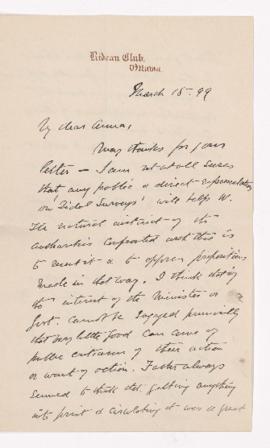 Rideau Club,
Ottawa.
March 15. 99
My dear Anna,
Many thanks for your
letter — I am not at all sure
that any public & direct representation
on Tidal Surveys' will help W.
The natural instinct of the
authorities confronted with this is
to resent it & to oppose propositions
made in that way. I think that if
the interest of the Minister or
Govt. cannot be engaged primarily
that very little good can come of
public criticism of their action
or want of action. Father always
seemed to think that getting anything
into print & circulating it was a great